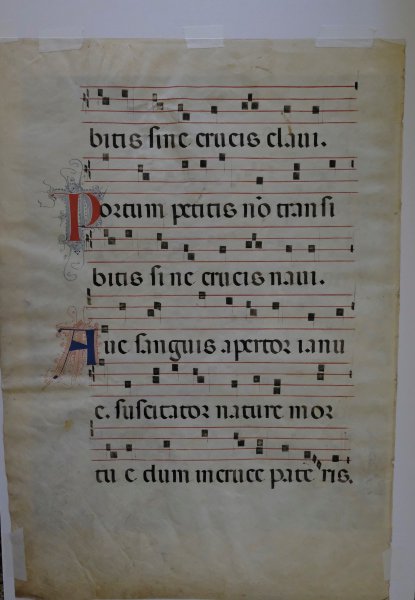 bitis sine crucis claui.
Portum petitis nō transi
bitis sine crucis naui.
Aue sanguis apertor ianu
e. suscitator nature mor
tu e dum in cruce pate ris.